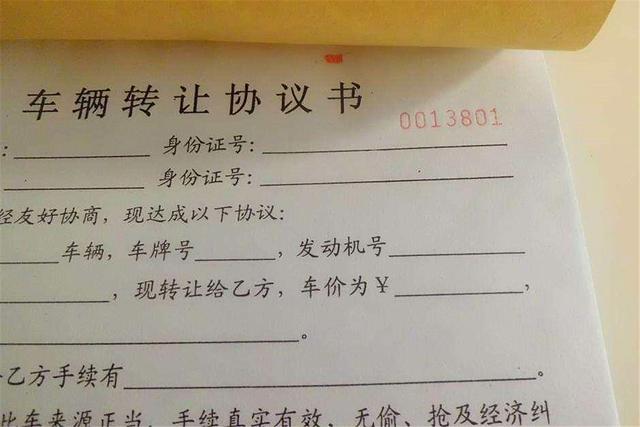 车辆转让协议书
0013801
: 身份证号:
身份证号:
经友好协商，现达成以下协议:
车辆，车牌号 ，发动机号
，现转让给乙方，车价为¥ ，
。
乙方手续有 。
此车来源正当，手续真实有效，无偷、抢及经济纠